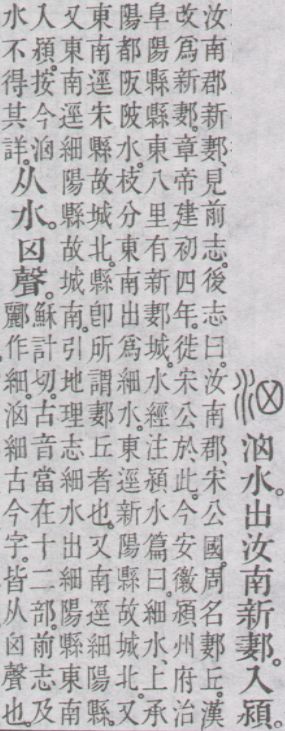 ⿰氵囟水。出汝南新郪。入潁。
汝南郡新郪、見前志。後志曰。汝南郡、宋公國。周名郪丘。漢
改爲新郪。章帝建初四年。徙宋公於此。今安徽潁州府治
阜陽縣縣東八里有新郪城。水經注潁水篇曰。細水、上承
陽都阪陂水。枝分東南出爲細水。東逕新陽縣故城北。又
東南逕朱縣故城北。縣卽所謂郪丘者也。又南逕細陽縣。
又東南逕細陽縣故城南。引地理志細水出細陽縣東南
入潁。按今⿰氵囟
水不得其詳。
从水。囟聲。
蘇計切。古音當在十二部。前志及
酈作細。⿰氵囟細古今字。皆从囟聲也。